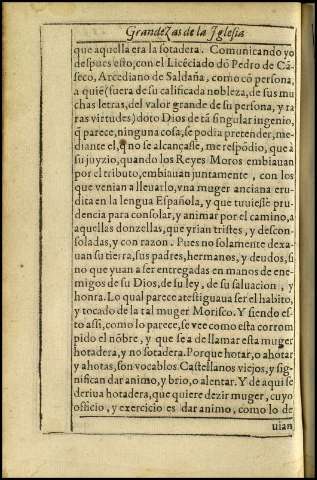 Grandezas de la Iglesia
que aquella era la sotadera. Comunicando yo
despues esto, con el Licẽciado dõ Pedro de Cã-
seco, Arcediano de Saldaña, como cõ persona,
a quiẽ (fuera de su calificada nobleza, de sus mu
chas letras, del valor grande de su persona, y ra
ras virtudes) doto Dios de tã singular ingenio,
q̃ parece, ninguna cosa, se podia pretender, me-
diante el, q̃ no se alcançasse, me respõdio, que a
su juyzio, quando los Reyes Moros embiauan
por el tributo, embiauan juntamente, con los
que venian a lleuarlo, vna muger anciana eru-
dita en la lengua Española, y que tuuiesse pru-
dencia para consolar, y animar por el camino, a
aquellas donzellas, que yrian tristes, y descon-
soladas, y con razon. Pues no solamente dexa-
uan su tierra, sus padres, hermanos, y deudos, si
no que yuan a ser entregadas en manos de ene-
migos de su Dios, de su ley, de su saluacion, y
honra. Lo qual parece atestiguaua ser el habito,
y tocado de la tal muger Morisco. Y siendo es-
to assi, como lo parece, se vee como esta corrom
pido el nõbre, y que se a de llamar esta muger
hotadera, y no sotadera. Porque hotar, o ahotar
y ahotas, son vocablos Castellanos viejos, y sig-
nifican dar animo, y brio, o alentar. Y de aqui se
deriua hotadera, que quiere dezir muger, cuyo
officio, y exercicio es dar animo, como lo de
uian